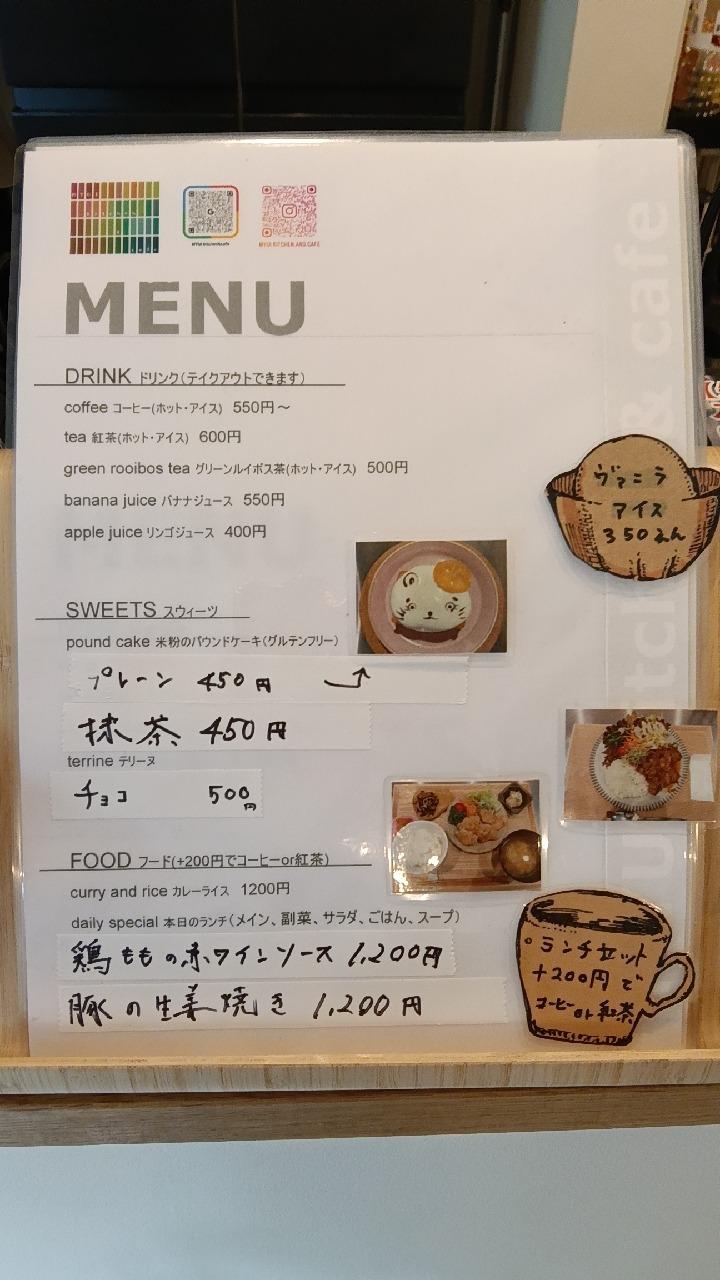 MYUU KITCHEN AND CAFE
MENU
DRINK ドリンク(テイクアウトできます)
coffee コーヒー(ホット・アイス) 550円～
tea 紅茶(ホット・アイス) 600円
green rooibos tea グリーンルイボス茶(ホット・アイス) 500円
banana juice バナナジュース 550円
apple juice リンゴジュース 400円
ヴァニラ
アイス
350えん
SWEETS スウィーツ
pound cake 米粉のパウンドケーキ(グルテンフリー)
プレーン 450円
抹茶 450円
terrine テリーヌ
チョコ 500円
FOOD フード(+200円でコーヒーor紅茶)
curry and rice カレーライス 1200円
daily special 本日のランチ(メイン、副菜、サラダ、ごはん、スープ)
鶏ももの赤ワインソース 1,200円
豚の生姜焼き 1,200円
。ランチセット
+200円で
コーヒー
or 紅茶
& cafe